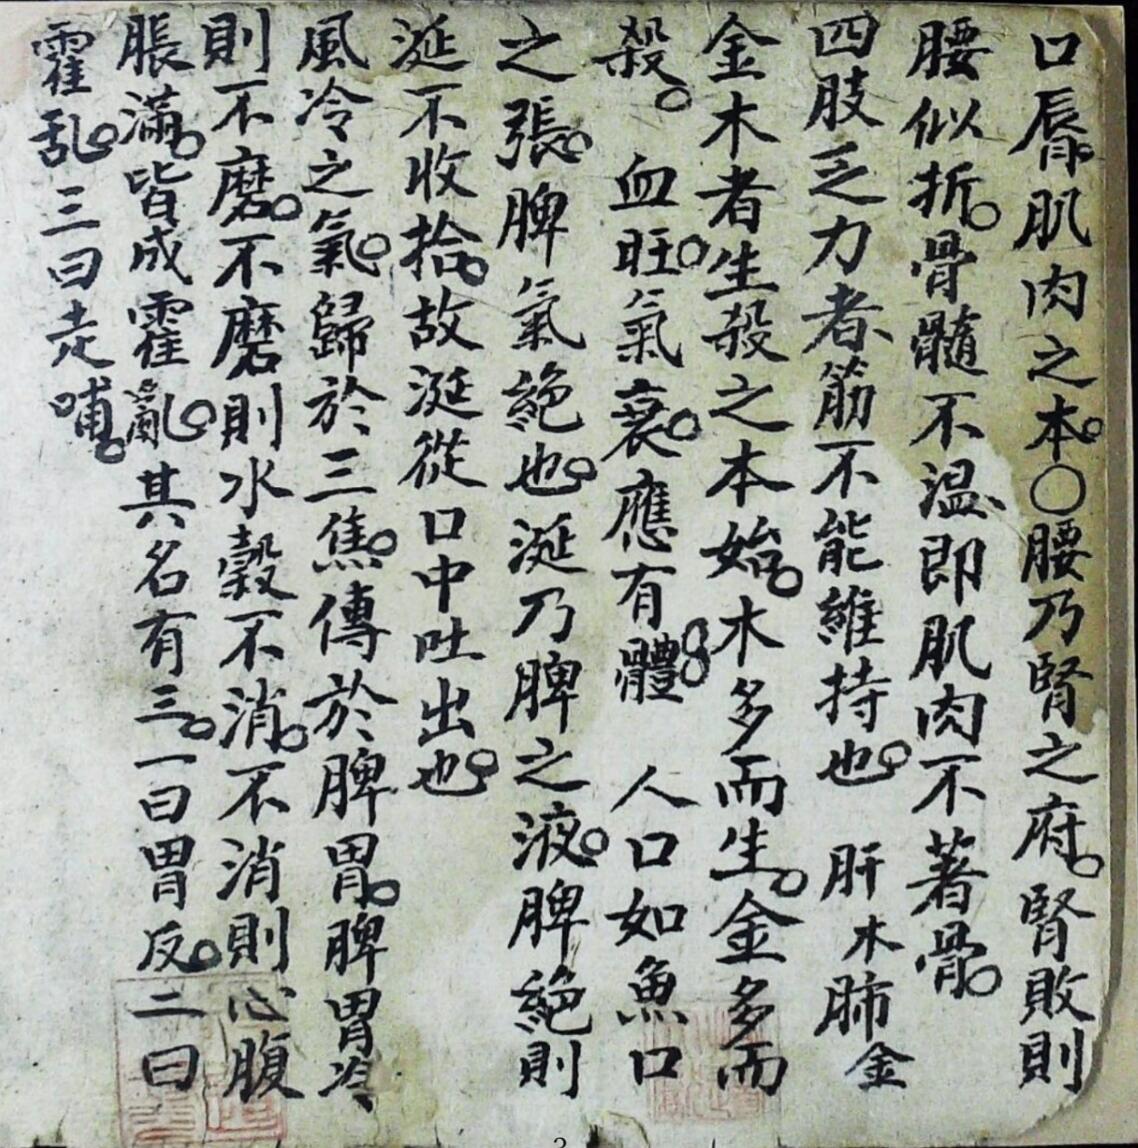 口脣肌肉之本。〇腰乃腎之府。腎敗則
腰似折。骨髓不溫即肌肉不著骨。
四肢乏力者筋不能維持也。肝木肺金
金木者生殺之本始。木多而生。金多而
殺。血旺。氣衰。應有體。人口如魚口
之張。脾氣絕也。涎乃脾之液。脾絕則
涎不收拾。故涎從口中吐出也。
風冷之氣。歸於三焦。傳於脾胃。脾胃冷
則不磨。不磨則水穀不消。不消則心腹
脹滿。皆成霍亂。其名有三。一曰胃反。二曰
霍乱。三曰走哺。
2